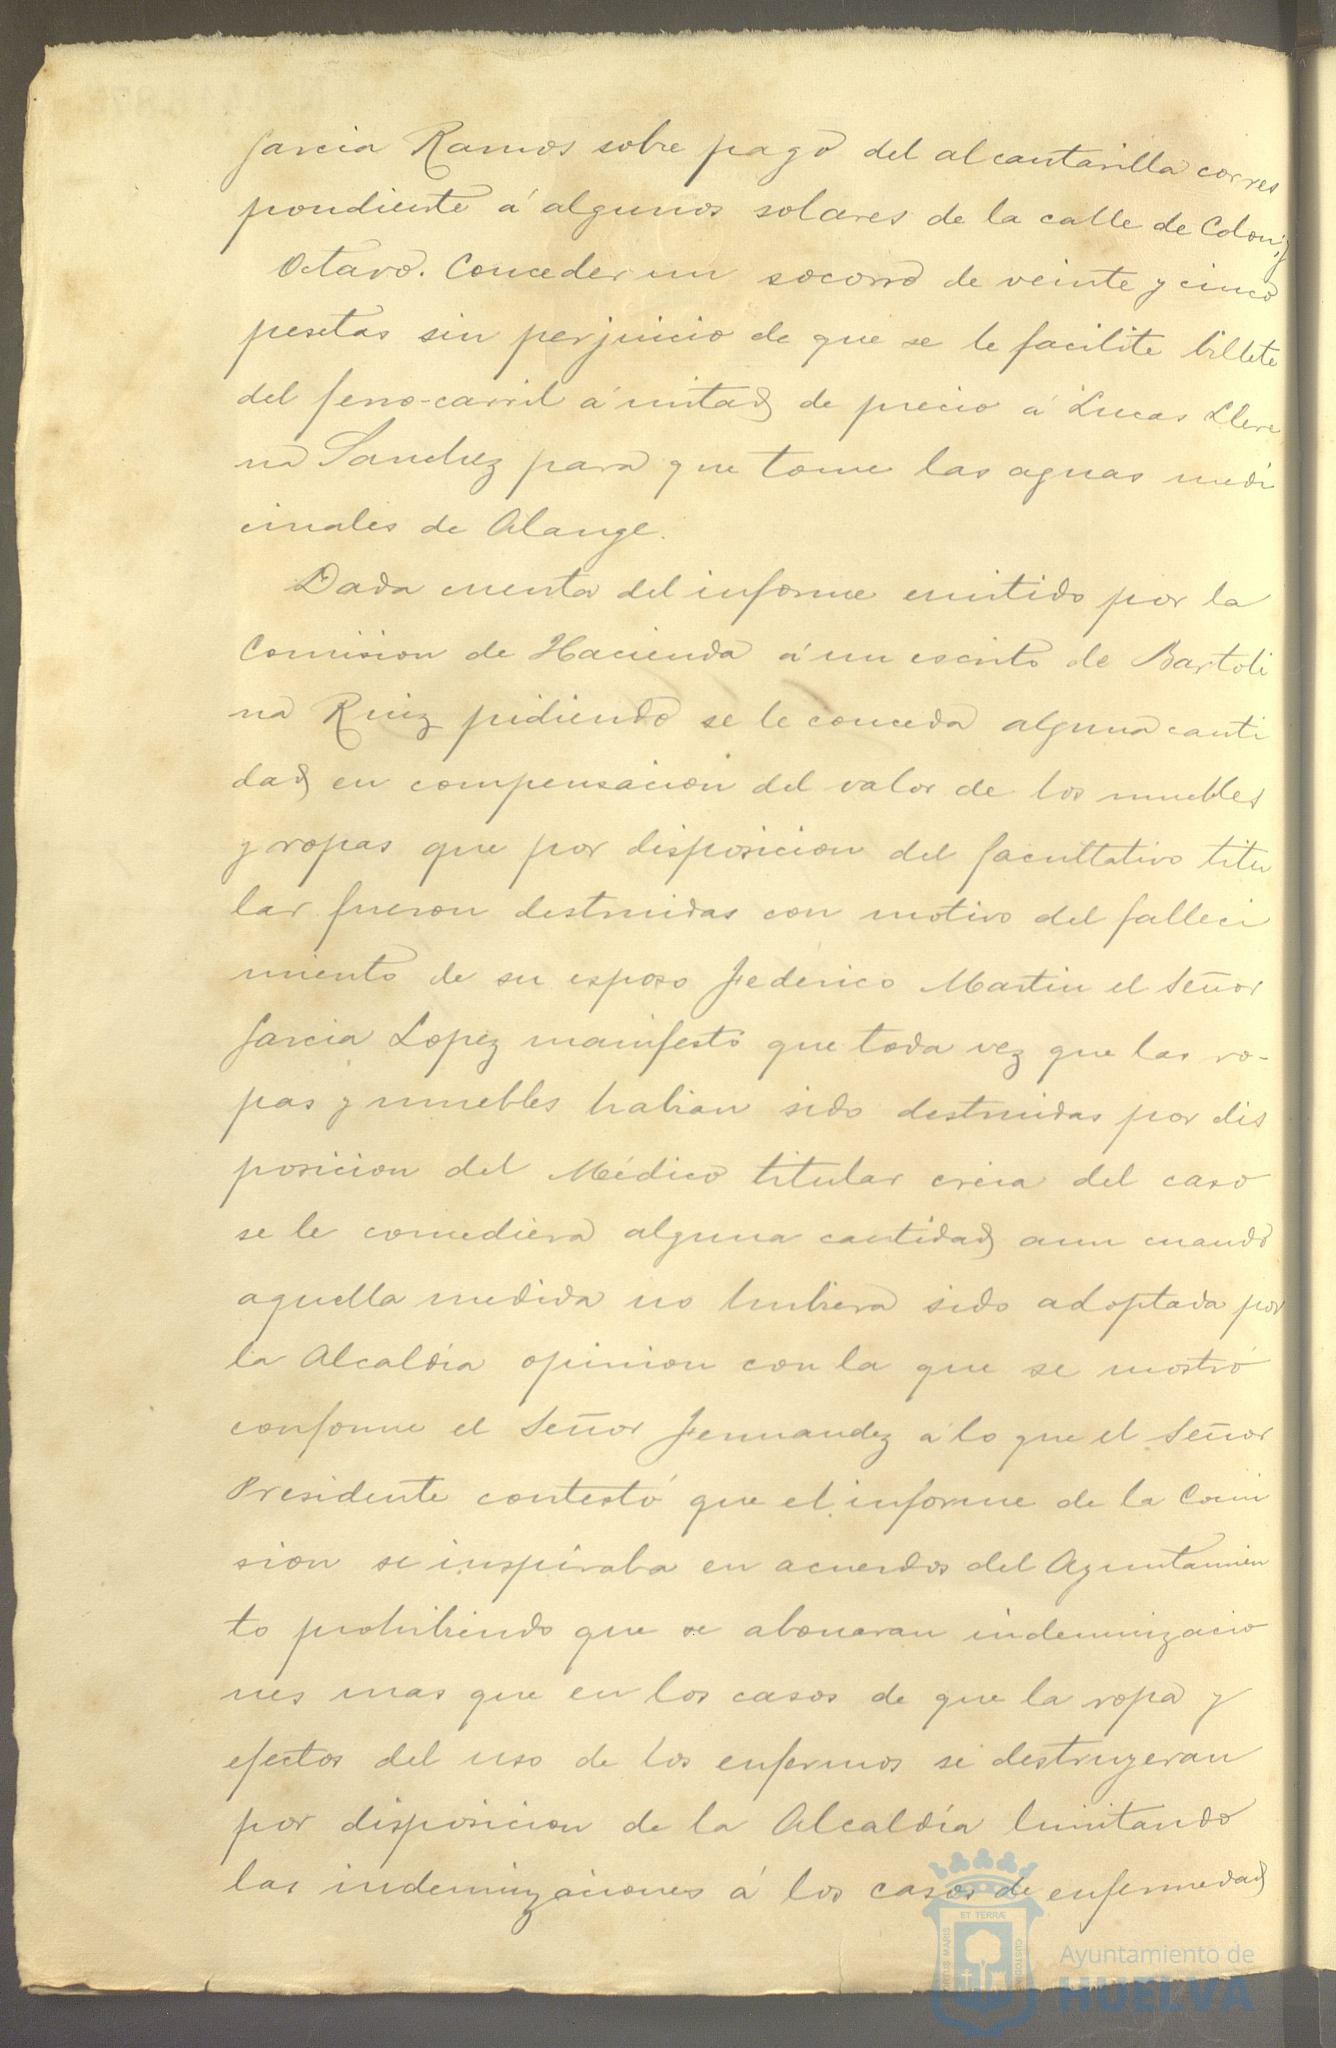 Garcia Ramos sobre pago del alcantarilla corres
pondiente á algunos solares de la calle de Colon; y
Octavo. Conceder un socorro de veinte y cinco
pesetas sin perjuicio de que se le facilite billete
del ferro-carril á mitad de precio á Lucas Llere
na Sanchez para que tome las aguas medi
cinales de Alange.
Dada cuenta del informe emitido por la
Comision de Hacienda á un escrito de Bartoli
na Ruiz pidiendo se le conceda alguna canti
dad en compensacion del valor de los muebles
y ropas que por disposicion del facultativo titu
lar fueron destruidas con motivo del falleci
miento de su esposo Federico Martin el Señor
Garcia Lopez manifestó que toda vez que las ro-
pas y muebles habian sido destruidas por dis
posicion del Médico titular creia del caso
se le concediera alguna cantidad aun cuando
aquella medida no hubiera sido adoptada por
la Alcaldía opinion con la que se mostró
conforme el Señor Fernandez á lo que el Señor
Presidente contestó que el informe de la Comi
sion se inspiraba en acuerdos del Ayuntamien
to prohibiendo que se abonaran indemnizacio
nes mas que en los casos de que la ropa y
efectos del uso de los enfermos se destruyeran
por disposicion de la Alcaldía limitando
las indemnizaciones á los casos de enfermedad
ET TERRÆ
PORTUS MARIS
CUSTODIA
Ayuntamiento de
HUELVA